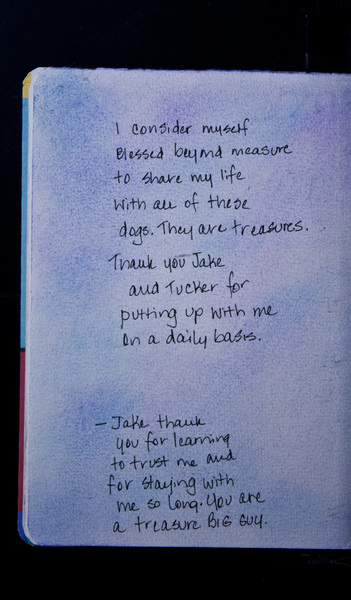 I consider myself
Blessed beyond measure
to share my life
with all of these
dogs. They are treasures.
Thank you Jake
and Tucker for
putting up with me
on a daily basis.
— Jake thank
you for learning
to trust me and
for staying with
me so long. You are
a treasure BIG GUY.